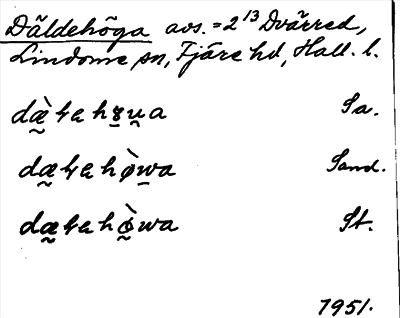 Däldehöga avs. = 2¹³ Dvärred,
Lindome sn, Fjäre hd, Hall. l.
dæ̀ɬɐhɤu̯a Sa.
dæɬɐhø̀wa Sand.
dæɬɐhò̰wa St.
1951.